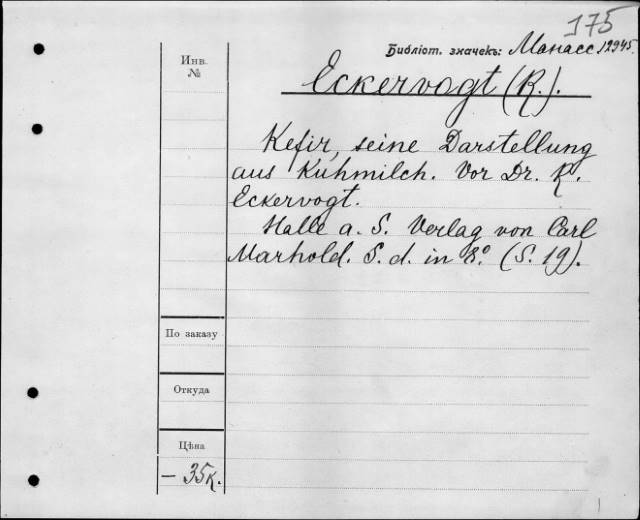 175
Библіот. значекъ: Манасс 12945.
Инв.
№
Eckervogt (R.).
Kefir, seine Darstellung
aus Kuhmilch. Vor Dr. R.
Eckervogt.
Halle a. S. Verlag von Carl
Marhold. S. d. in 8º (S. 19).
По заказу
Откуда
Цѣна
— 35к.